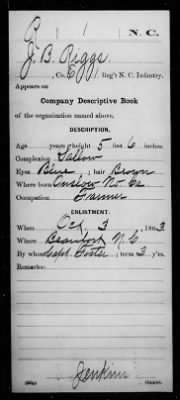 R 1 N. C.
J. B. Riggs
Co. E, 1 Reg't N. C. Infantry.
Appears on
Company Descriptive Book
of the organization named above.
DESCRIPTION.
Age years; height 5 feet 6 inches.
Complexion Sallow
Eyes Blue; hair Brown
Where born Onslow No Ca
Occupation Farmer
ENLISTMENT.
When Oct. 3, 1863
Where Beaufort N. C
By whom Capt. Foster; term 3 y'rs.
Remarks:
Jenkins